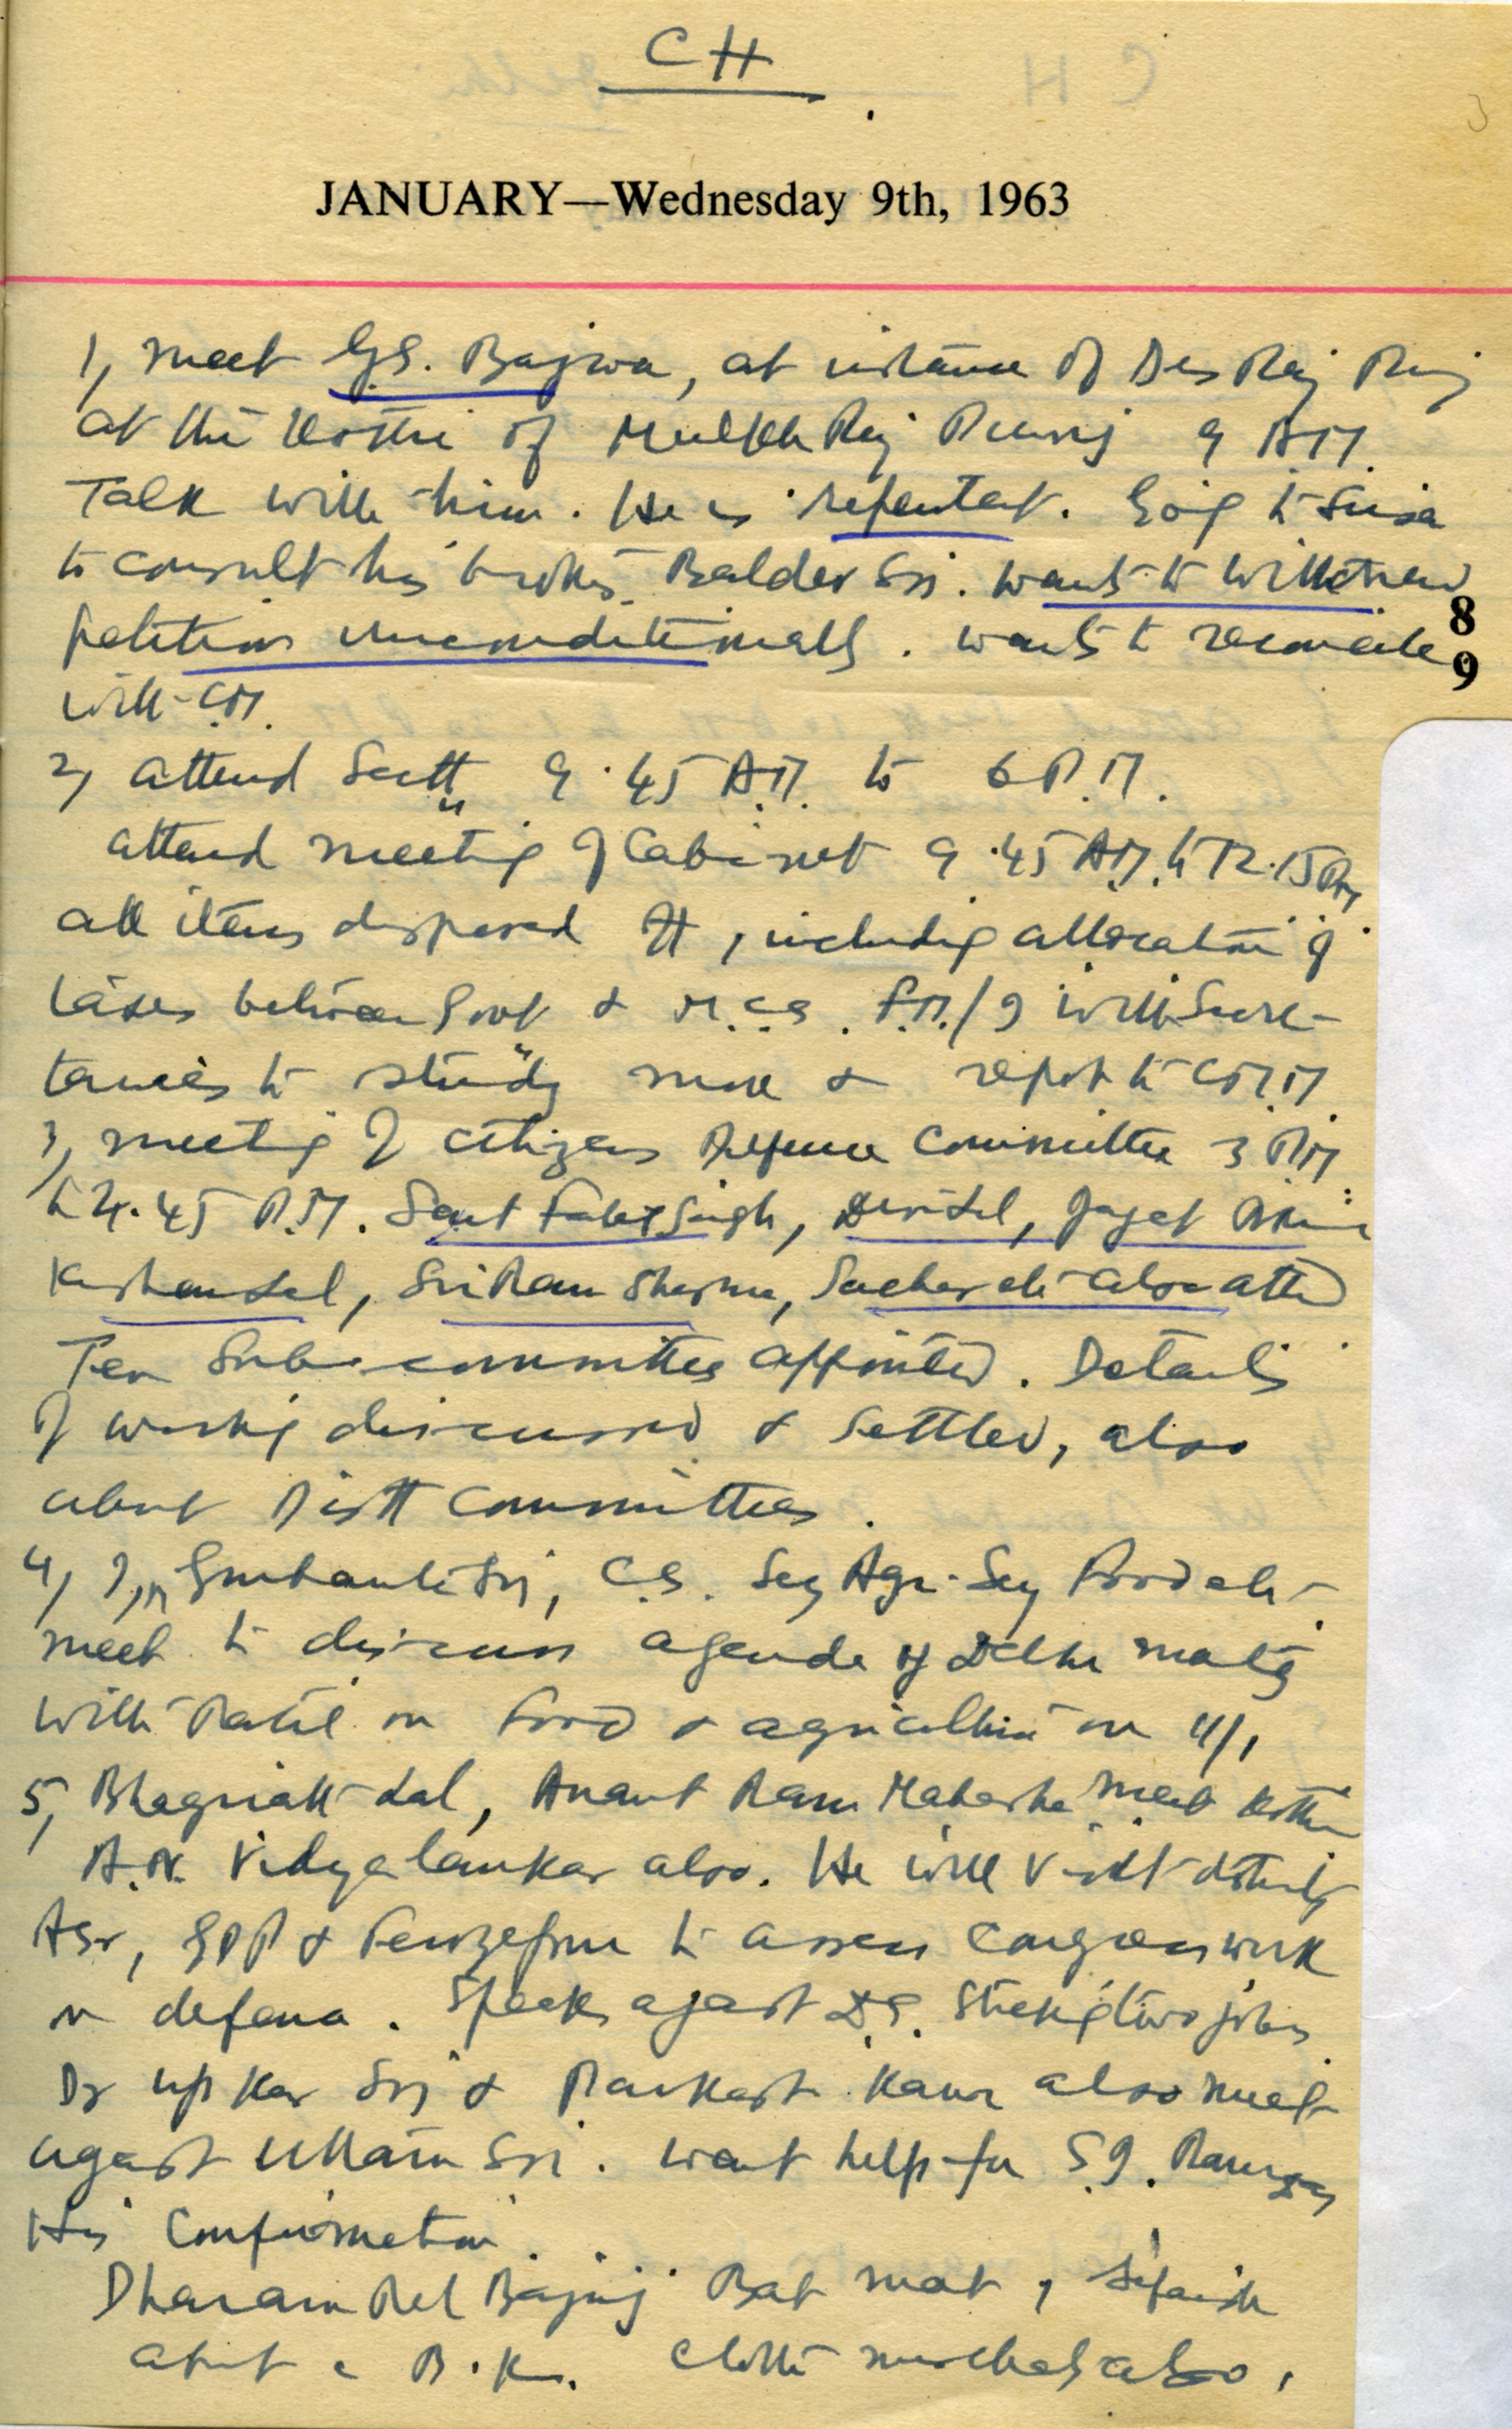 CH
JANUARY—Wednesday 9th, 1963
1, meet G.S. Bajwa, at instance of Des Raj
at the Kothi of Mulkh Raj 9 AM.
Talk with him. He is repentent. Going to Sirsa
to consult his brother Baldev Sri. wants to withdraw
petition unconditionally. wants to reconcile
8
9
with CM.
2, attend Sectt 9.45 A.M. to 6 P.M.
attend meeting of Cabinet 9.45 AM. to 12.15 PM
all items disposed off, including allocation of
taxes between Govt & M.C.S. F.M./9 with Secre-
taries to study more & report to C.M.
3, meeting of citizens Defence Committee 3 PM
to 4.45 P.M. Sant Fateh Singh, Devilal, Jagat Narain
Kishanlal, Sri Ram Sharma, Sachar etc also attend
Ten Sub-committees appointed. Details
of working discussed & settled, also
about Distt Committees.
4, Gurbanta Sri, C.S. Secy Agr. Secy Food etc
meet to discuss agenda of Delhi meeting
with Patil on Food & agriculture on 11/1
5, Bhagirath Lal, Anant Ram Mahasha meet Kothi
A.N. Vidyalankar also. He will visit
Asr, GDP & Ferozepur to assess Congress work
on defence. Speaks against D.S. sticking two jobs
Dr Upkar Sri & Kaur also meet
against Uttam Sri. want help for S.G.
His Confirmation.
Dharam Pal Bajaj Bat meet, sifarish
about B.K. cloth merchants also.